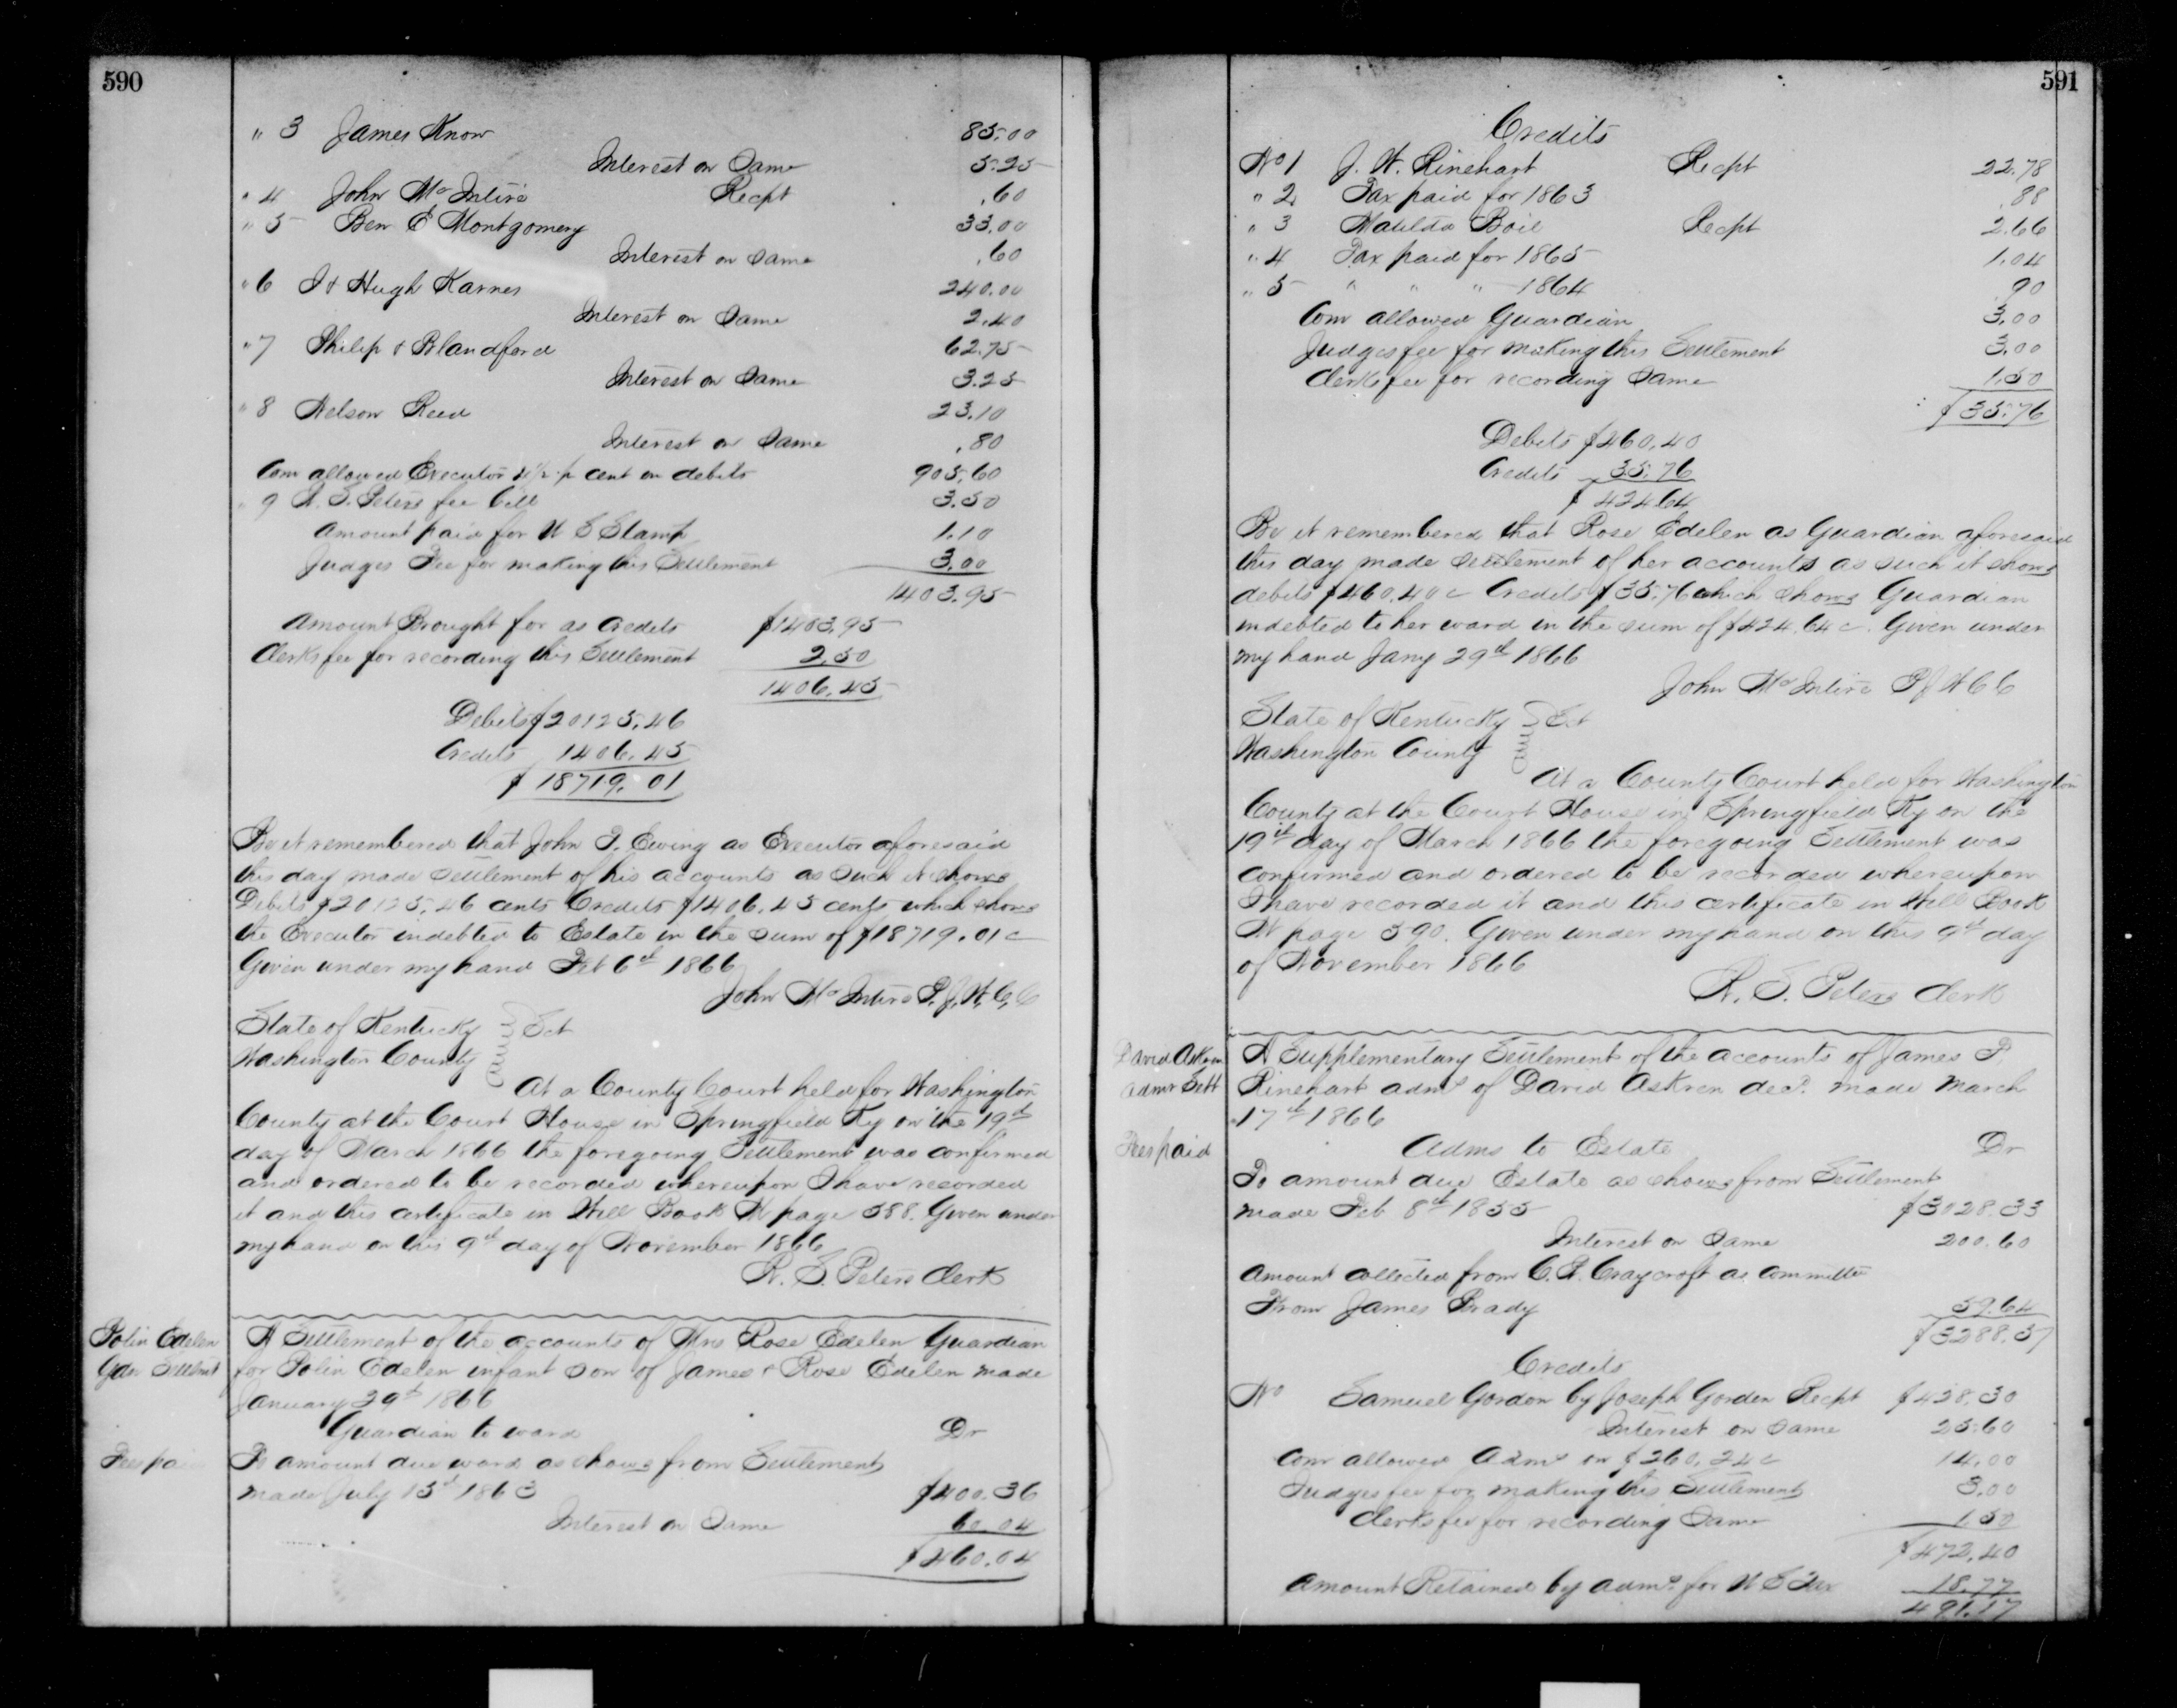 590
" 3 James Know 85.00
Interest on Same 5.25
" 4 John McIntire Recpt .60
" 5 Ben E Montgomery 33.00
Interest on Same .60
" 6 J & Hugh Karnes 240.00
Interest on Same 2.40
" 7 Philip & Blandford 62.75
Interest on Same 3.25
" 8 Nelson Reed 23.10
Interest on Same .80
Com allowed Executor 4 1/2 p cent on debits 905.60
" 9 W. S. Peters fee bill 3.50
Amount paid for U S Stamp 1.10
Judges Fee for making this Settlement 3.00
1403.95
Amount Brought for as Credits $1403.95
Clerks fee for recording this Settlement 2.50
1406.45
Debits $20125.46
Credits 1406.45
$18719.01
Be it remembered that John T. Ewing as Executor aforesaid
this day made Settlement of his accounts as such it shows
Debits $20125.46 cents Credits $1406.45 cents which shows
the Executor indebted to Estate in the sum of $18719.01 c
Given under my hand Feb 6th 1866
John McIntire P. J. W. C. C
State of Kentucky } Sct
Washington County
At a County Court held for Washington
County at the Court House in Springfield Ky on the 19th
day of March 1866 the foregoing Settlement was confirmed
and ordered to be recorded whereupon I have recorded
it and this certificate in Will Book K page 588. Given under
my hand on this 9th day of November 1866
W. S. Peters Clerk
Polin Edelen
Gdn Settlmt
A Settlement of the accounts of Mrs Rose Edelen Guardian
for Polin Edelen infant son of James & Rose Edelen made
January 29th 1866
Guardian to ward Dr
Fees pai
To amount due ward as shows from Settlement
made July 13th 1863 $400.36
Interest on Same 60.04
$460.04
591
Credits
No 1 J. W. Rinehart Recpt 22.78
" 2 Tax paid for 1863 .88
" 3 Matilda Boil Recpt 2.66
" 4 Tax paid for 1865 1.04
" 5 " " " 1864 .90
Com allowed Guardian 3.00
Judges fee for making this Settlement 3.00
Clerks fee for recording Same 1.50
$35.76
Debits $460.40
Credits 35.76
$424.64
Be it remembered that Rose Edelen as Guardian aforesaid
this day made settlement of her accounts as such it shows
debits $460.40 c Credits $35.76 which shows Guardian
indebted to her ward in the sum of $424.64 c. Given under
my hand Jany 29th 1866
John McIntire P J W C C
State of Kentucky } Sct
Washington County
At a County Court held for Washington
County at the Court House in Springfield Ky on the
19th day of March 1866 the foregoing Settlement was
confirmed and ordered to be recorded whereupon
I have recorded it and this certificate in Will Book
K page 590. Given under my hand on this 9th day
of November 1866
W. S. Peters Clerk
David Askren
Admr Sett
A Supplementary Settlement of the accounts of James P
Rinehart admr of David Askren decd. made March
17th 1866
Fees paid
Adms to Estate Dr
To amount due Estate as shows from Settlement
made Feb 8th 1855 $3028.33
Interest on Same 200.60
Amount collected from C. R. Craycroft as Committee
From James Brady 59.64
$3288.57
Credits
No Samuel Gordon by Joseph Gorden Recpt $428.30
Interest on Same 25.60
Com allowed Admr on $260.24 c 14.00
Judges fee for making this Settlement 3.00
Clerks fee for recording Same 1.50
$472.40
Amount Retained by admr. for U S Tax 18.77
491.17